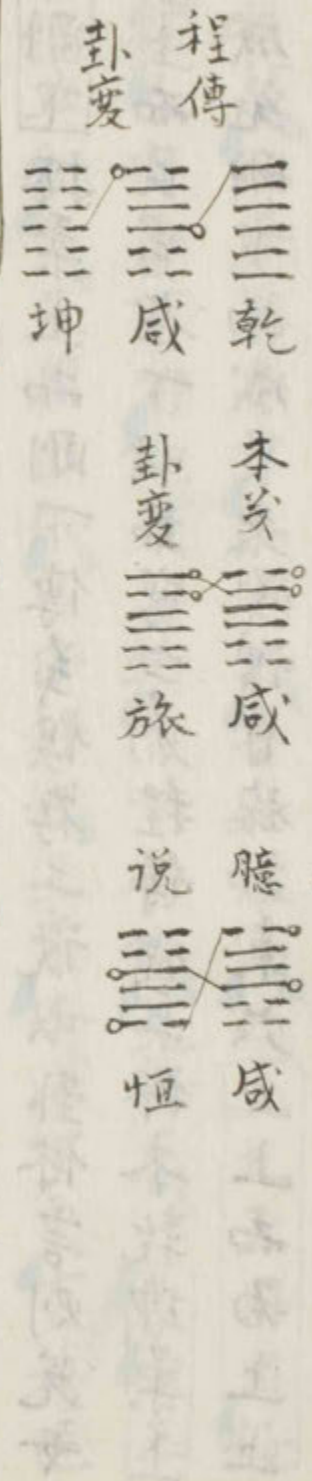 程傳
卦變
乾
咸
坤
本义
卦變
咸
旅
臆
说
咸
恒